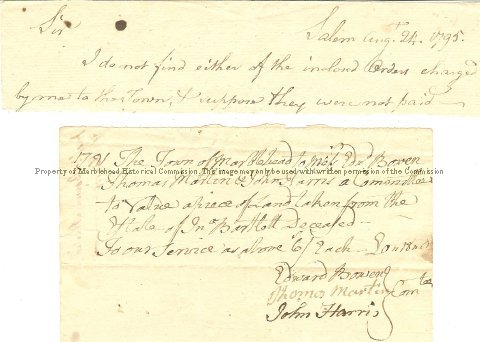 Sir
Salem Augt. 24. 1795.
I do not find either of the inclosd Orders charged
by me to the Town, & suppose they were not paid
1791 The Town of Marblehead to Edwd Bowen
Property of Marblehead Historical Commission. This image may only be used with written permission of the Commission
Thomas Martin & John Harris a Comm
to Value a peice of Land taken from the
State of Jno Bartlett Deceased
To our Service as above 6/ Each
Edward Bowen
Thomas Martin
Comtee
John Harris